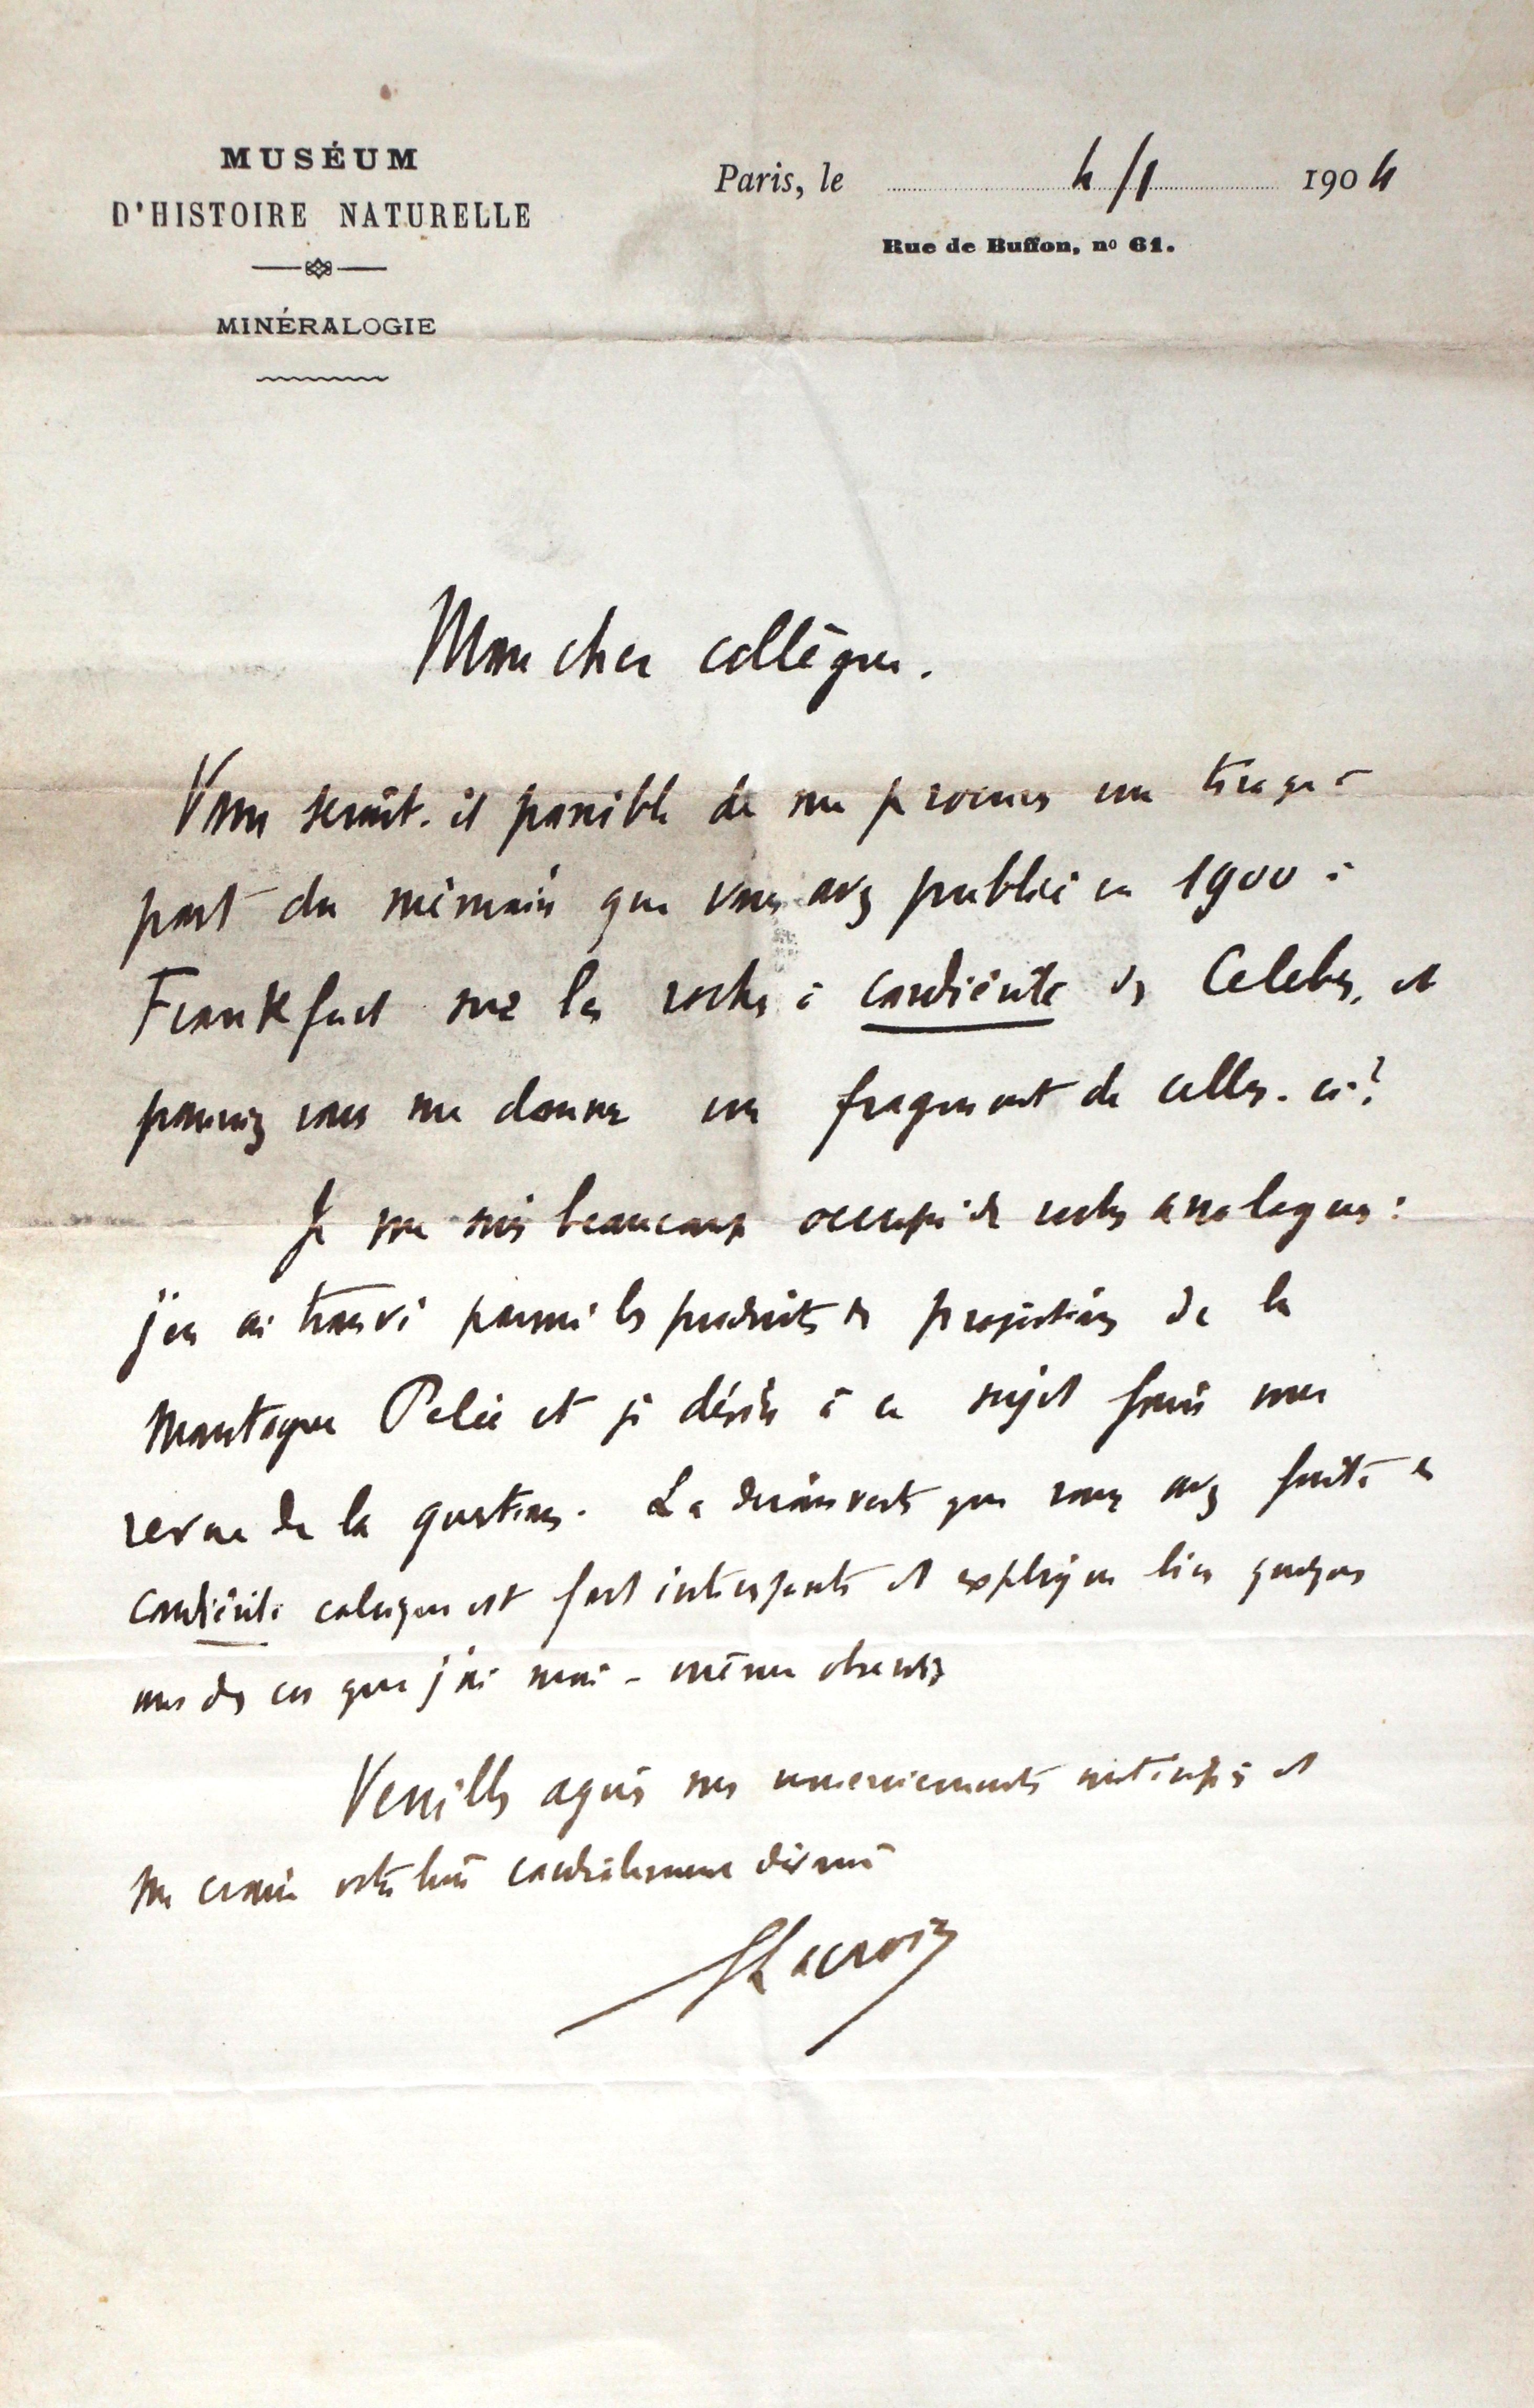 MUSÉUM
D'HISTOIRE NATURELLE
MINÉRALOGIE
Paris, le 4/1 1904
Rue de Buffon, nº 61.
Mon cher collègue.
Vous serait-il possible de me procurer un tirage à
part du mémoire que vous avez publié en 1900 à
Frankfurt sur les roches à cordiérite de Celebes, et
pourriez vous me donner un fragment de celles-ci?
Je me suis beaucoup occupé de roches analogues:
j'en ai trouvé parmi les produits de projections de la
Montagne Pelée et je désire à ce sujet faire une
revue de la question. La découverte que vous avez faite de
cordiérite est fort intéressante et explique bien quelques
uns des cas que j'ai moi-même observés
Veuillez agréer mes remerciements anticipés et
me croire votre bien cordialement dévoué
ALacroix